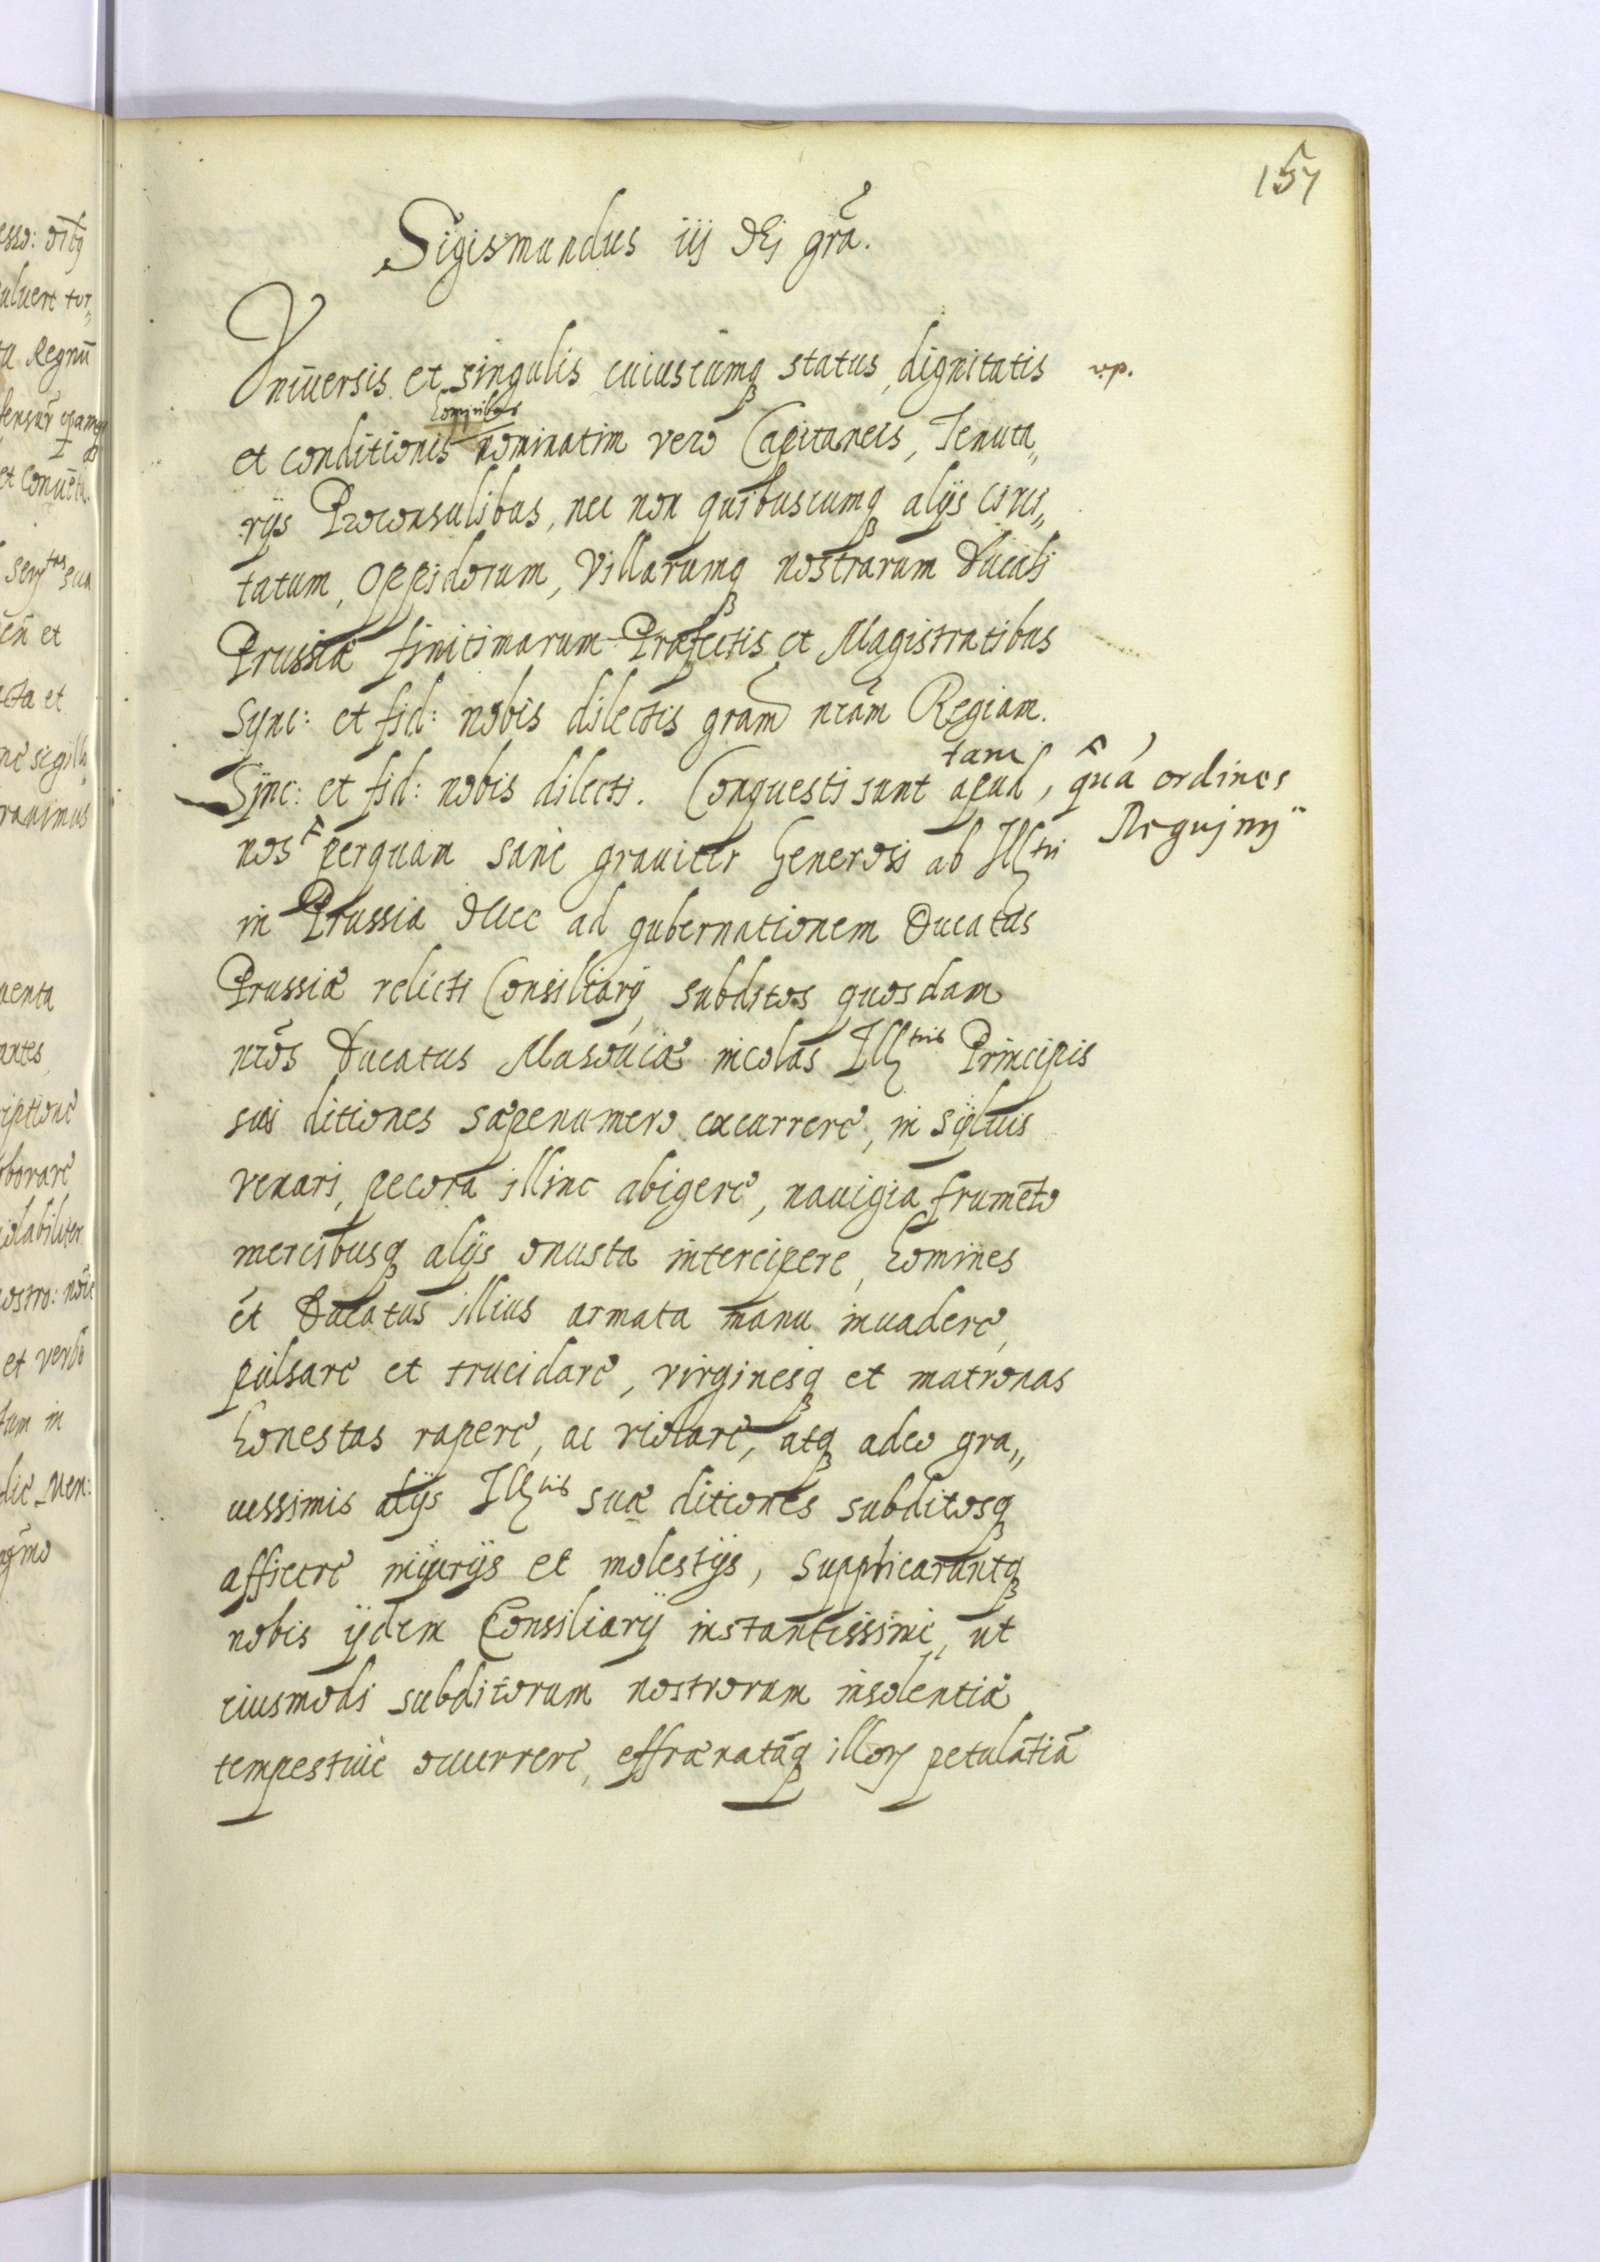 157
Sigismundus iij Dej grā.
Vniuersis et singulis cuiuscumq status dignitatis
et conditionis hominibus nominatim vero Capitaneis, Tenuta„
rijs Proconsulibus, nec non quibuscumq alijs civi„
tatum, Oppidorum, Villarumq nostrarum Ducali
Prussiæ finitimarum Præfectis et Magistratibus
Sync: et fid: nobis dilectis grām nrām Regiam.
Sync: et fid: nobis dilecti. Conquesti sunt apud
tam, quā ordines
Regujnij
nos perquam sane grauiter Generosi ab Illtri
in Prussia Duce ad gubernationem Ducatus
Prussiæ relicti Consiliarij, subditos quosdam
nrōs Ducatus Masouiæ incolas Illtris Principis
sui ditiones sæpenumero excurrere, in syluis
venari, pecora illinc abigere, nauigia frumēto
mercibusq alijs onusta intercipere, homines
et Ducatus illius armata manu inuadere,
pulsare et trucidare, virginesq et matronas
honestas rapere, ac violare, atq adeo gra„
uissimis alijs Illtris suæ ditiones subditosq
afficere iniurijs et molestijs, supplicaruntq
nobis ijdem Consiliarij instantissime, ut
eiusmodi subditorum nostrorum insolentiæ
tempestiue occurrere, effrænatāq illorū petulātiā